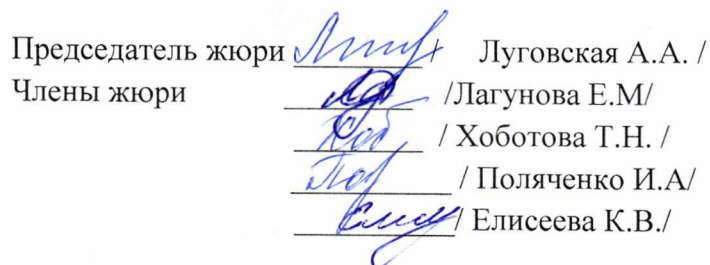 Председатель жюри / Луговская А.А. /
Члены жюри /Лагунова Е.М/
/ Хоботова Т.Н. /
/ Поляченко И.А/
/ Елисеева К.В./